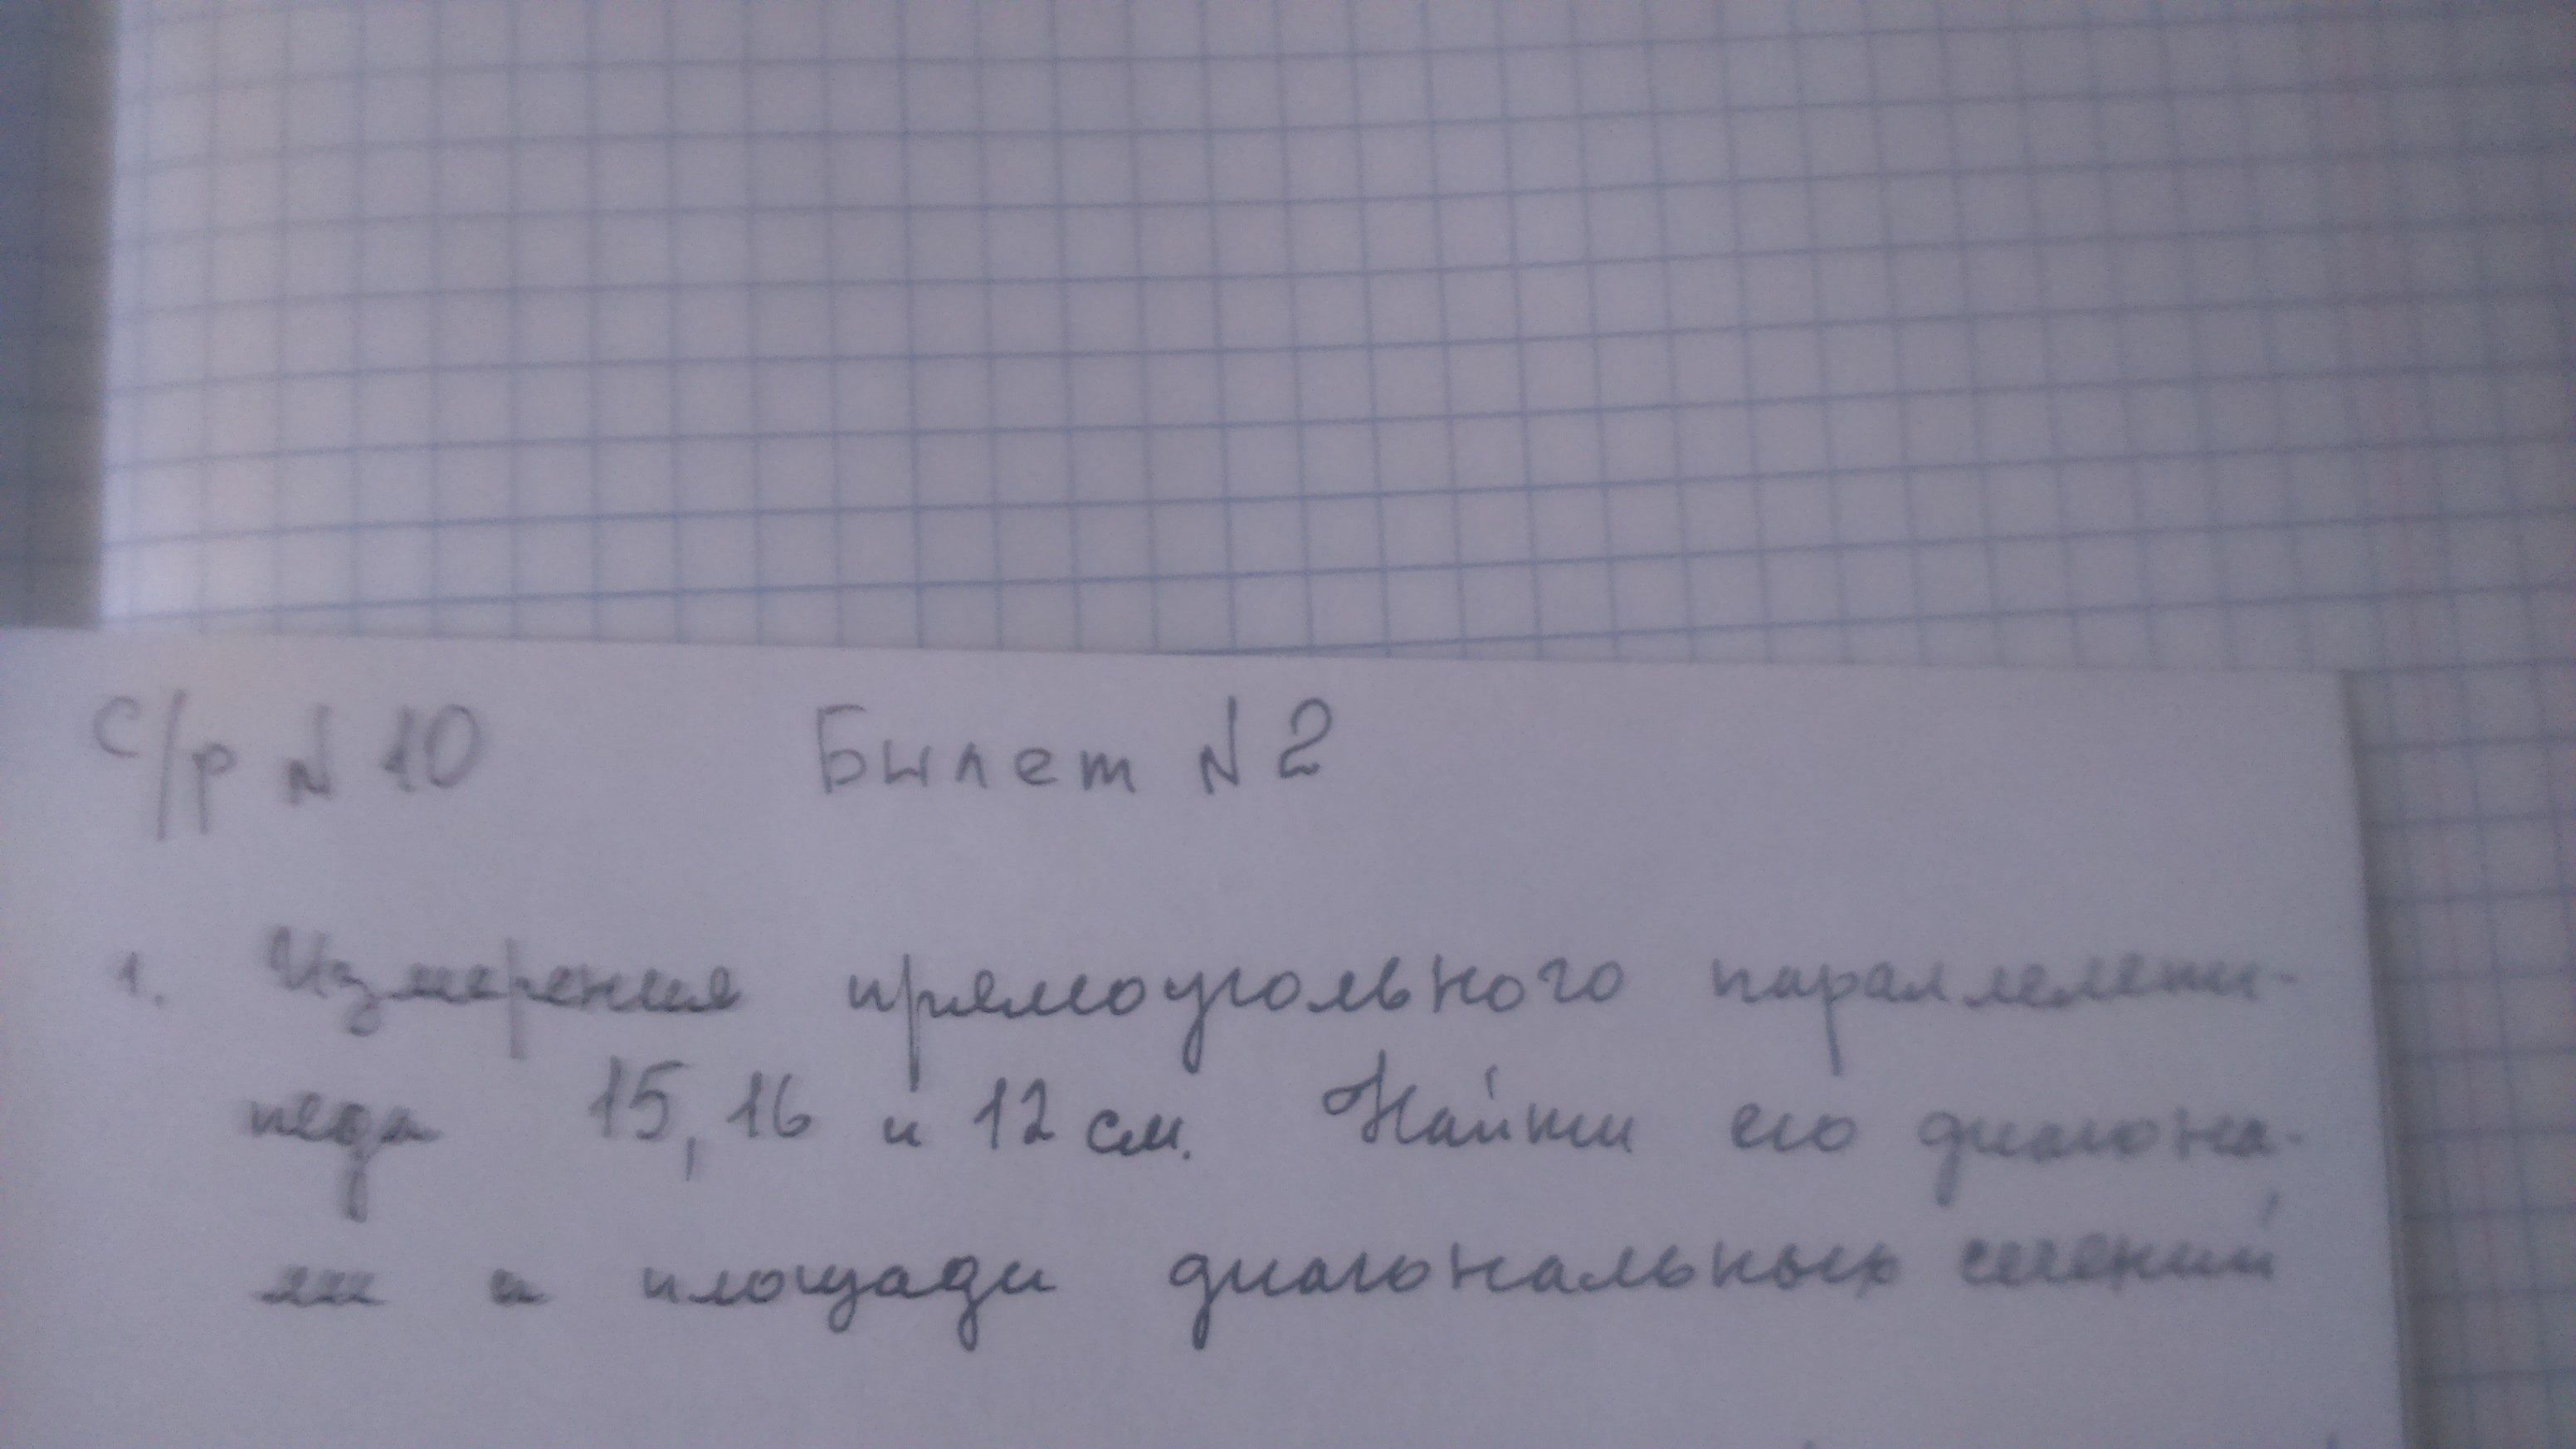 С/р N 10 Билет N 2
1. Измерения прямоугольного параллелепи-
педа 15, 16 и 12 см. Найти его диагона-
ли и площади диагональных сечений